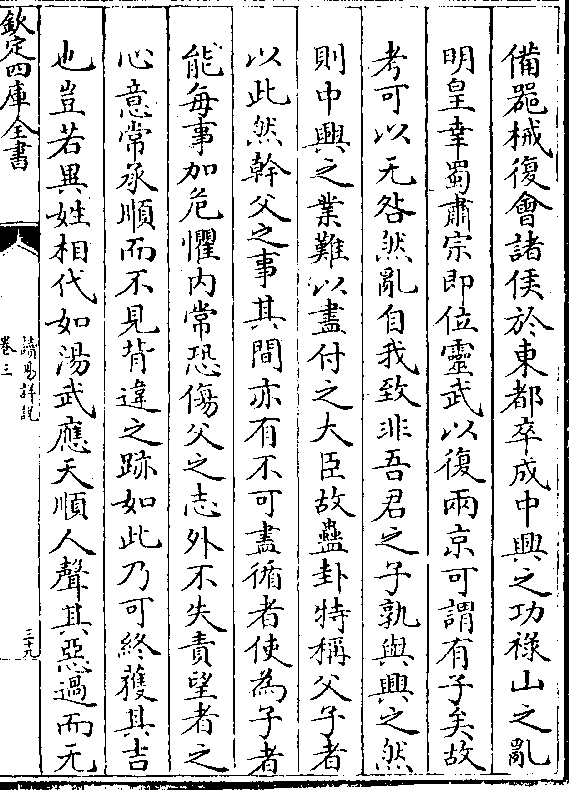 備器械復會諸侯於東都卒成中興之功禄山之亂
明皇幸蜀肅宗即位靈武以復兩京可謂有子矣故
考可以无咎然亂自我致非吾君之子孰與興之然
則中興之業難以盡付之大臣故蠱卦特稱父子者
以此然幹父之事其間亦有不可盡循者使為子者
能每事加危懼内常恐傷父之志外不失責望者之
心意常承順而不見背違之跡如此乃可終獲其吉
也豈若異姓相代如湯武應天順人聲其惡過而无
欽定四庫全書
讀易詳說
卷三
三九